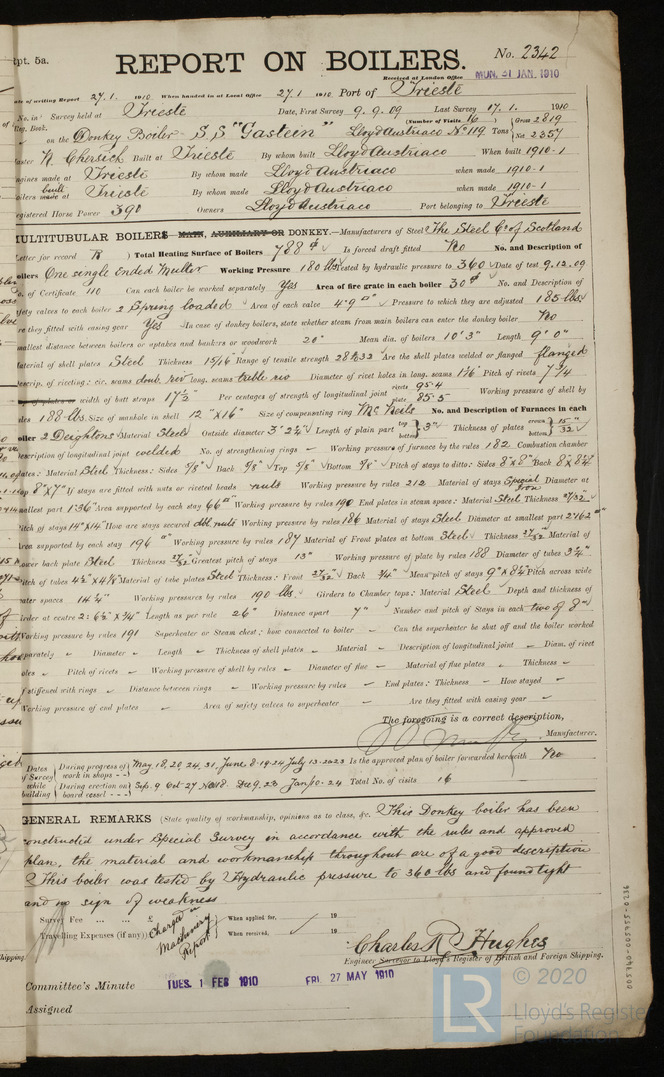 rpt. 5a.
REPORT ON BOILERS.
No. 2342
Received at London Office MON. 31 JAN. 1910
Date of writing Report 27.1. 1910 When handed in at Local Office 27.1 1910 Port of Trieste
No. in Survey held at Trieste Date, First Survey 9.9.09 Last Survey 17.1. 1910
Reg. Book. (Number of Visits 16) Gross 2819
on the Donkey Boiler S.S "Gastein" Lloyd Austriaco No 119. Tons Net 2357
Master N. Chersich Built at Trieste By whom built Lloyd Austriaco When built 1910-1
Engines made at Trieste By whom made Lloyd Austriaco when made 1910-1
Boilers made built at Trieste By whom made Lloyd Austriaco when made 1910-1
Registered Horse Power 390 Owners Lloyd Austriaco Port belonging to Trieste
MULTITUBULAR BOILERS MAIN, AUXILIARY OR DONKEY.—Manufacturers of Steel The Steel Co of Scotland
Letter for record R ) Total Heating Surface of Boilers 788 Is forced draft fitted No No. and Description of
Boilers One single Ended Multr Working Pressure 180 lbs Tested by hydraulic pressure to 360 Date of test 9.12.09
No. of Certificate 110 Can each boiler be worked separately Yes Area of fire grate in each boiler 30 No. and Description of
safety valves to each boiler 2 Spring loaded Area of each valve 4.9 Pressure to which they are adjusted 185 lbs
Are they fitted with easing gear Yes In case of donkey boilers, state whether steam from main boilers can enter the donkey boiler No
Smallest distance between boilers or uptakes and bunkers or woodwork 20" Mean dia. of boilers 10' 3" Length 9' 0"
Material of shell plates Steel Thickness 15/16 Range of tensile strength 28 & 32 Are the shell plates welded or flanged flanged
Descrip. of riveting: cir. seams doub. riv long. seams treble riv Diameter of rivet holes in long. seams 1 1/16 Pitch of rivets 7 1/4
width of butt straps 17 1/2 Per centages of strength of longitudinal joint rivets 95.4 plate 85.5 Working pressure of shell by
rules 188 lbs. Size of manhole in shell 12" x 16" Size of compensating ring McNeils No. and Description of Furnaces in each
boiler 2 Deightons Material Steel Outside diameter 3' 2 1/4 Length of plain part top bottom 3" Thickness of plates crown bottom 15/32
Description of longitudinal joint welded No. of strengthening rings – Working pressure of furnace by the rules 182 Combustion chamber
plates: Material Steel Thickness: Sides 5/8 Back 5/8 Top 5/8 Bottom 7/8 Pitch of stays to ditto: Sides 8" x 8" Back 8" x 8 1/4
Top 8" x 7" If stays are fitted with nuts or riveted heads nuts Working pressure by rules 212 Material of stays Special Iron Diameter at
smallest part 1.36" Area supported by each stay 66 Working pressure by rules 190 End plates in steam space: Material Steel Thickness 27/32
Pitch of stays 14" x 14" How are stays secured dbl nuts Working pressure by rules 186 Material of stays Steel Diameter at smallest part 2.162
Area supported by each stay 196 Working pressure by rules 187 Material of Front plates at bottom Steel Thickness 27/32 Material of
Lower back plate Steel Thickness 27/32 Greatest pitch of stays 13" Working pressure of plate by rules 188 Diameter of tubes 3 1/4"
Pitch of tubes 4 1/2 x 4 1/8 Material of tube plates Steel Thickness: Front 27/32 Back 3/4" Mean pitch of stays 9" x 8 1/4 Pitch across wide
water spaces 14 1/4" Working pressures by rules 190 lbs. Girders to Chamber tops: Material Steel Depth and thickness of
girder at centre 2: 6 1/2" x 3/4" Length as per rule 26" Distance apart 7" Number and pitch of Stays in each two of 8"
Working pressure by rules 191 Superheater or Steam chest; how connected to boiler – Can the superheater be shut off and the boiler worked
separately – Diameter – Length – Thickness of shell plates – Material – Description of longitudinal joint – Diam. of rivet
holes – Pitch of rivets – Working pressure of shell by rules – Diameter of flue – Material of flue plates – Thickness –
If stiffened with rings – Distance between rings – Working pressure by rules – End plates: Thickness – How stayed –
Working pressure of end plates – Area of safety valves to superheater – Are they fitted with easing gear –
The foregoing is a correct description,
Manufacturer.
Dates of Survey while building During progress of work in shops - - May 18, 20, 24, 31, June 8.19.24 July 13.20.23 Is the approved plan of boiler forwarded herewith No
During erection on board vessel - - - Sep. 9 Oct 27 Nov 18. Dec 9.23 Jan 10.24 Total No. of visits 16
GENERAL REMARKS (State quality of workmanship, opinions as to class, &c. This Donkey boiler has been
constructed under Special Survey in accordance with the rules and approved
plan, the material and workmanship throughout are of a good description
This boiler was tested by Hydraulic pressure to 360 lbs and found tight
and no sign of weakness
Survey Fee ... ... £ When applied for, 19
Travelling Expenses (if any) £ Charged on Machinery Report When received, 19
Charles R Hughes
Engineer Surveyor to Lloyd's Register of British and Foreign Shipping.
Committee's Minute TUES. 1 FEB 1910 FRI. 27 MAY 1910
Assigned
005740-005955-0236
© 2020
LR
Lloyd's Register
Foundation